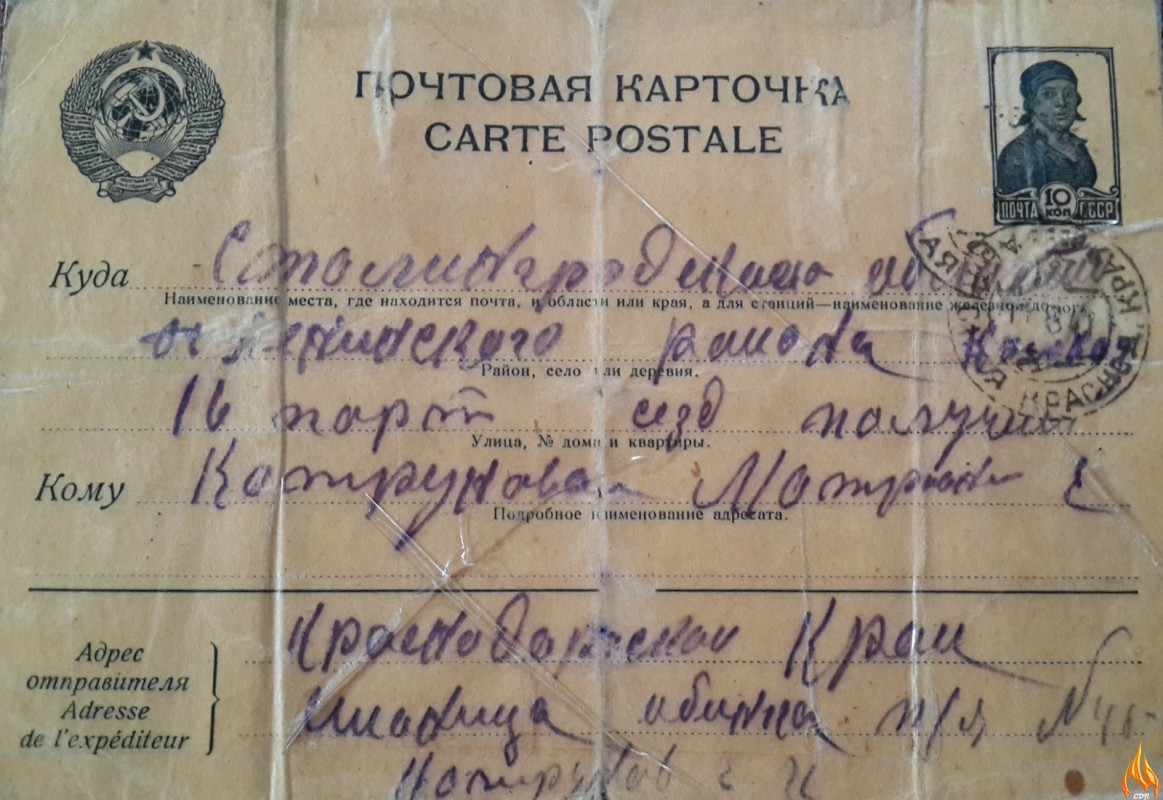 ПОЧТОВАЯ КАРТОЧКА
CARTE POSTALE
ПОЧТА 10 КОП. СССР
Куда Сталинградская
Наименование места, где находится почта, и области или края, а для станций—наименование железной дороги
Ленинского района
Район, село или деревня.
16 парт сезд получит
Улица, № дома и квартиры.
Кому Катрунова Матрени
Подробное наименование адресата.
Краснодарскаи Краи
Адрес
отправителя
Adresse
de l'expéditeur
п/я №
Катрунов
CDR